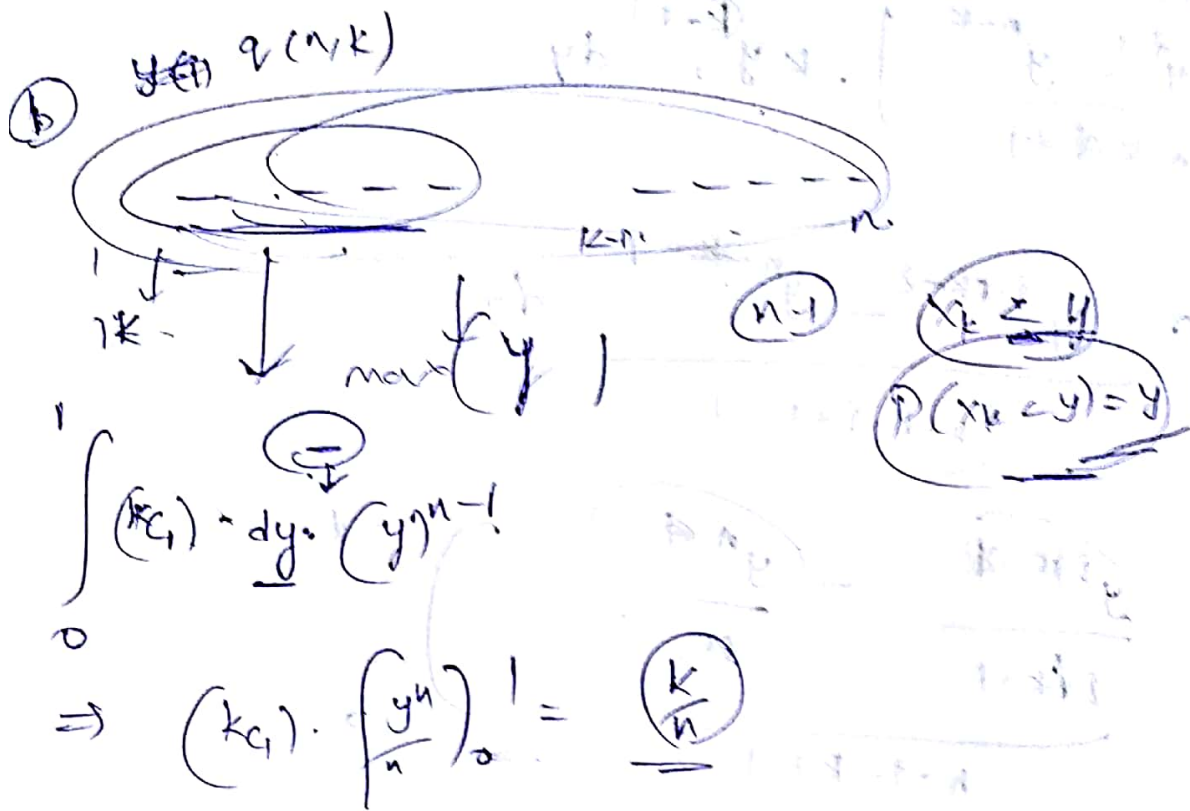 (b) q(n,k)
1 k-n n
k - max(y) (n-1) x_k ≤ y
P(x_k < y) = y
∫₀¹ (kC₁) · dy · (y)ⁿ⁻¹
⇒ (kC₁) · (yⁿ/n)₀¹ = k/n